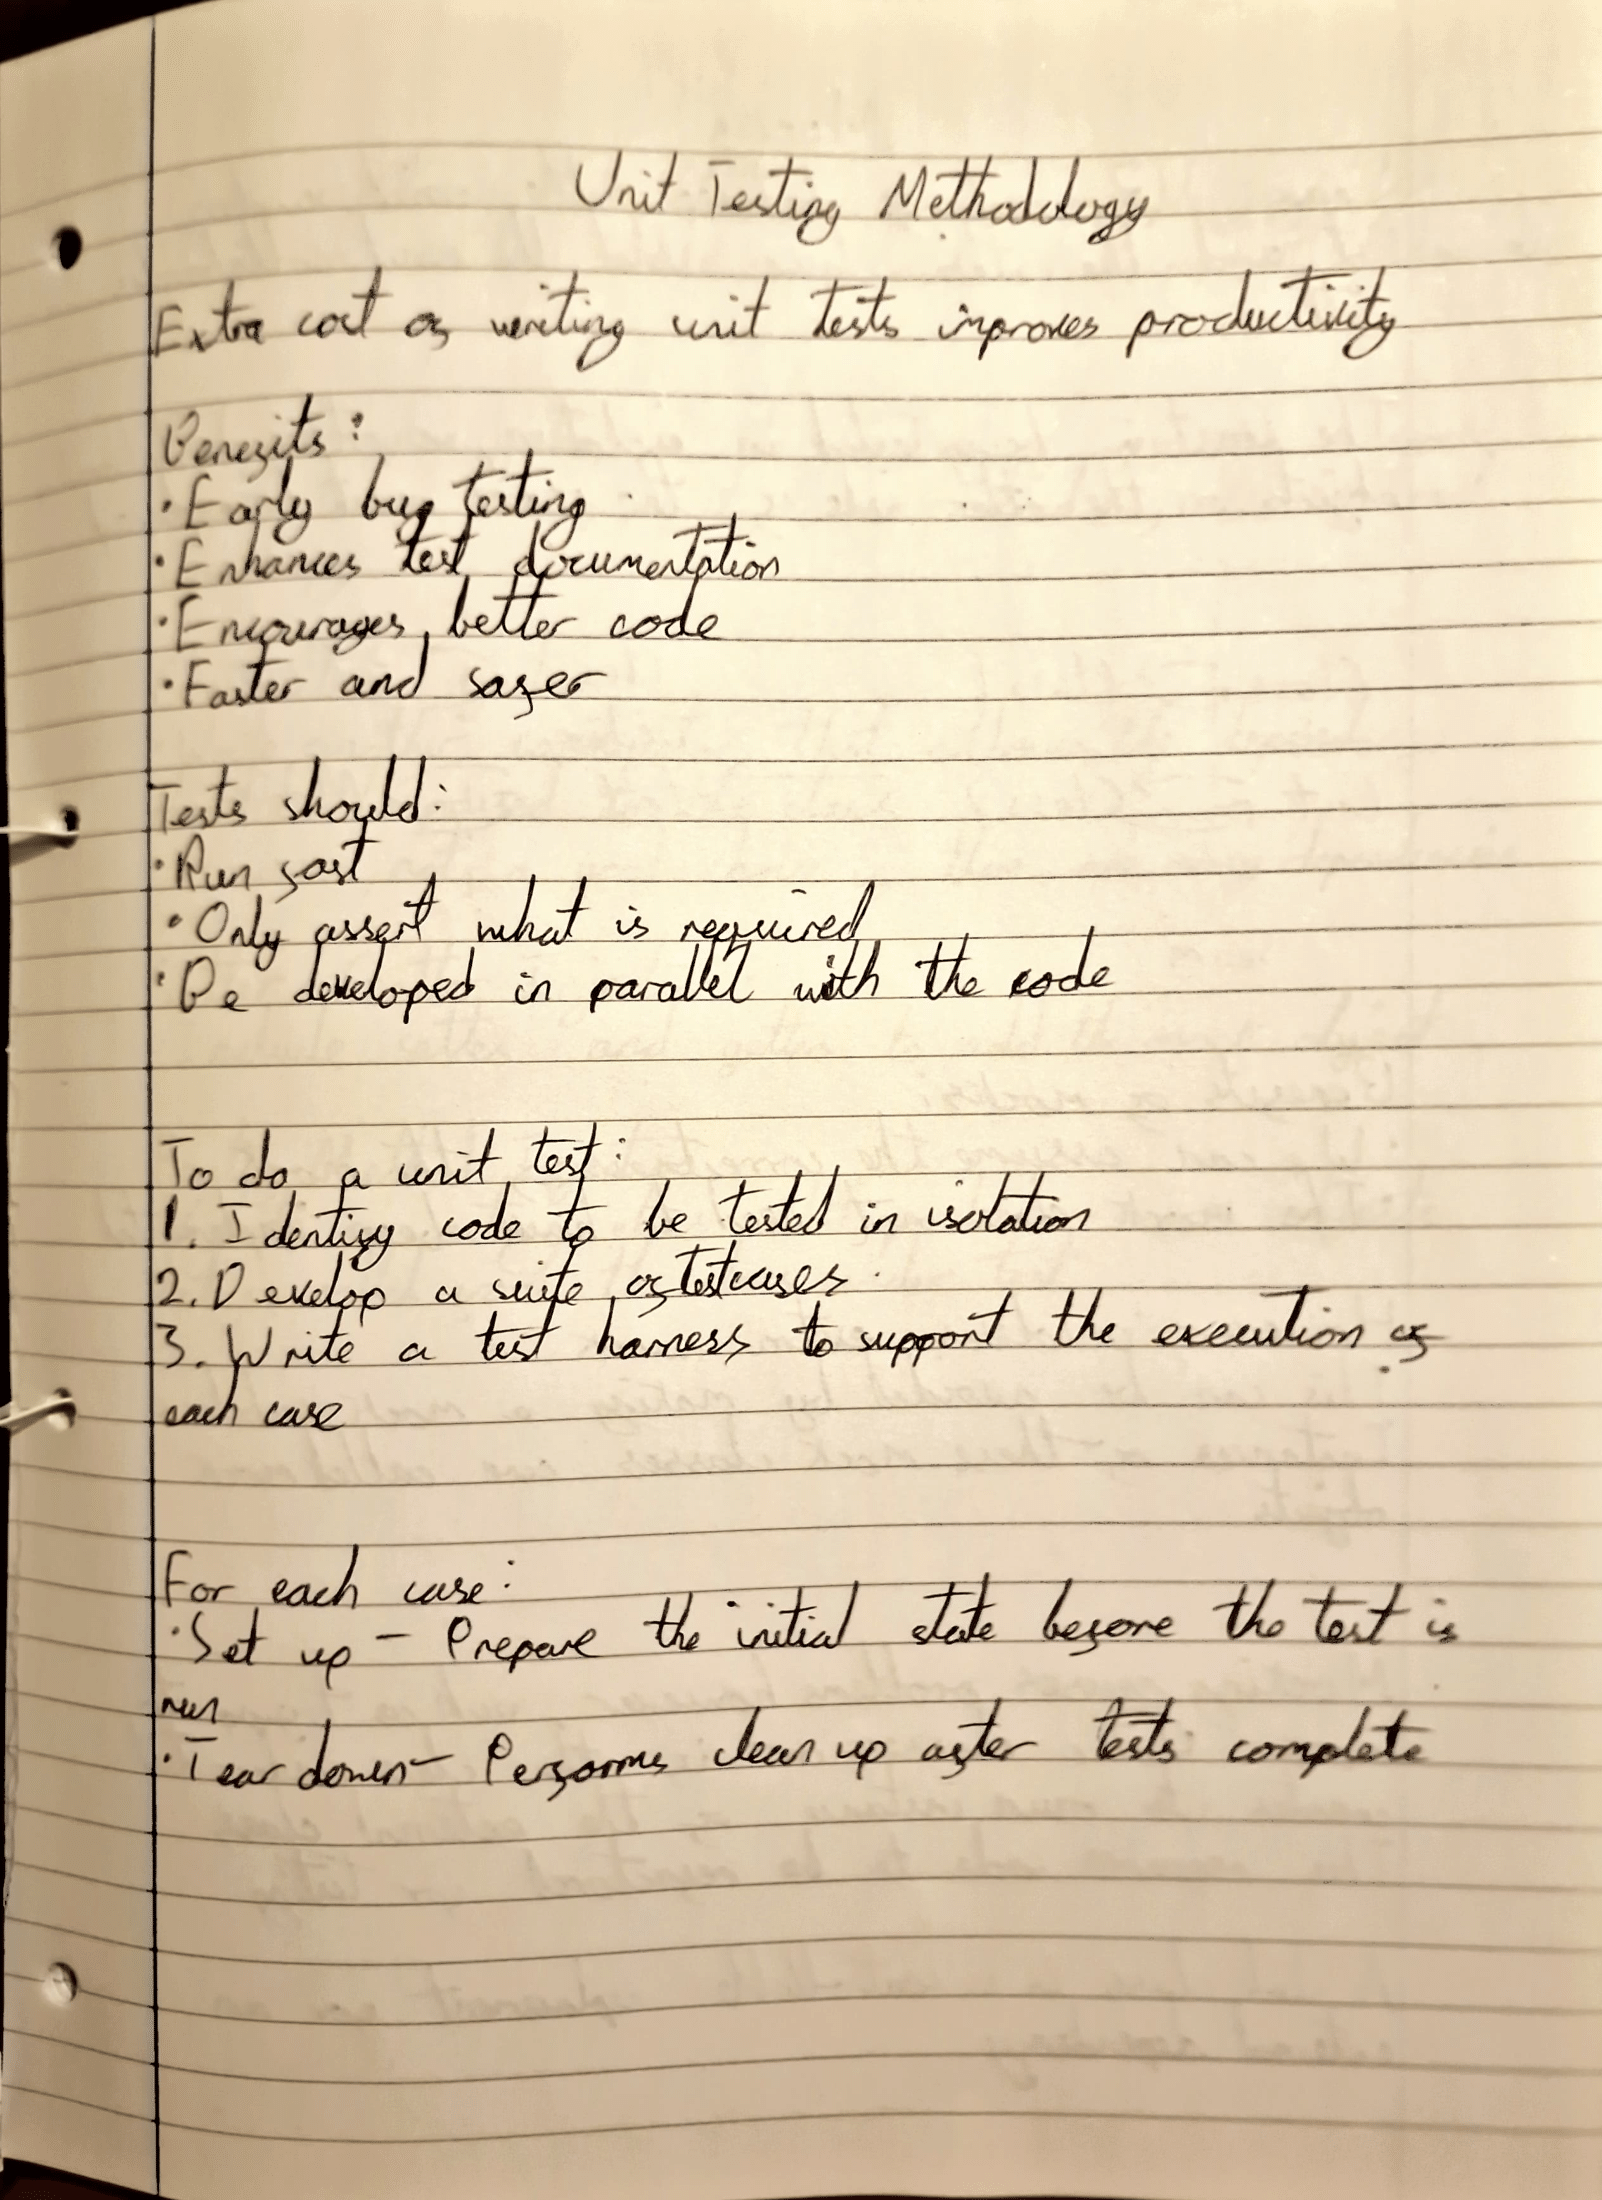 Unit Testing Methodology
Extra cost of writing unit tests improves productivity
Benefits:
• Early bug testing
• Enhances test documentation
• Encourages better code
• Faster and safer
Tests should:
• Run fast
• Only assert what is required
• Be developed in parallel with the code
To do a unit test:
1. Identify code to be tested in isolation
2. Develop a suite of testcases
3. Write a test harness to support the execution of
each case
For each case:
• Set up - Prepare the initial state before the test is
run
• Tear down - Performs clean up after tests complete